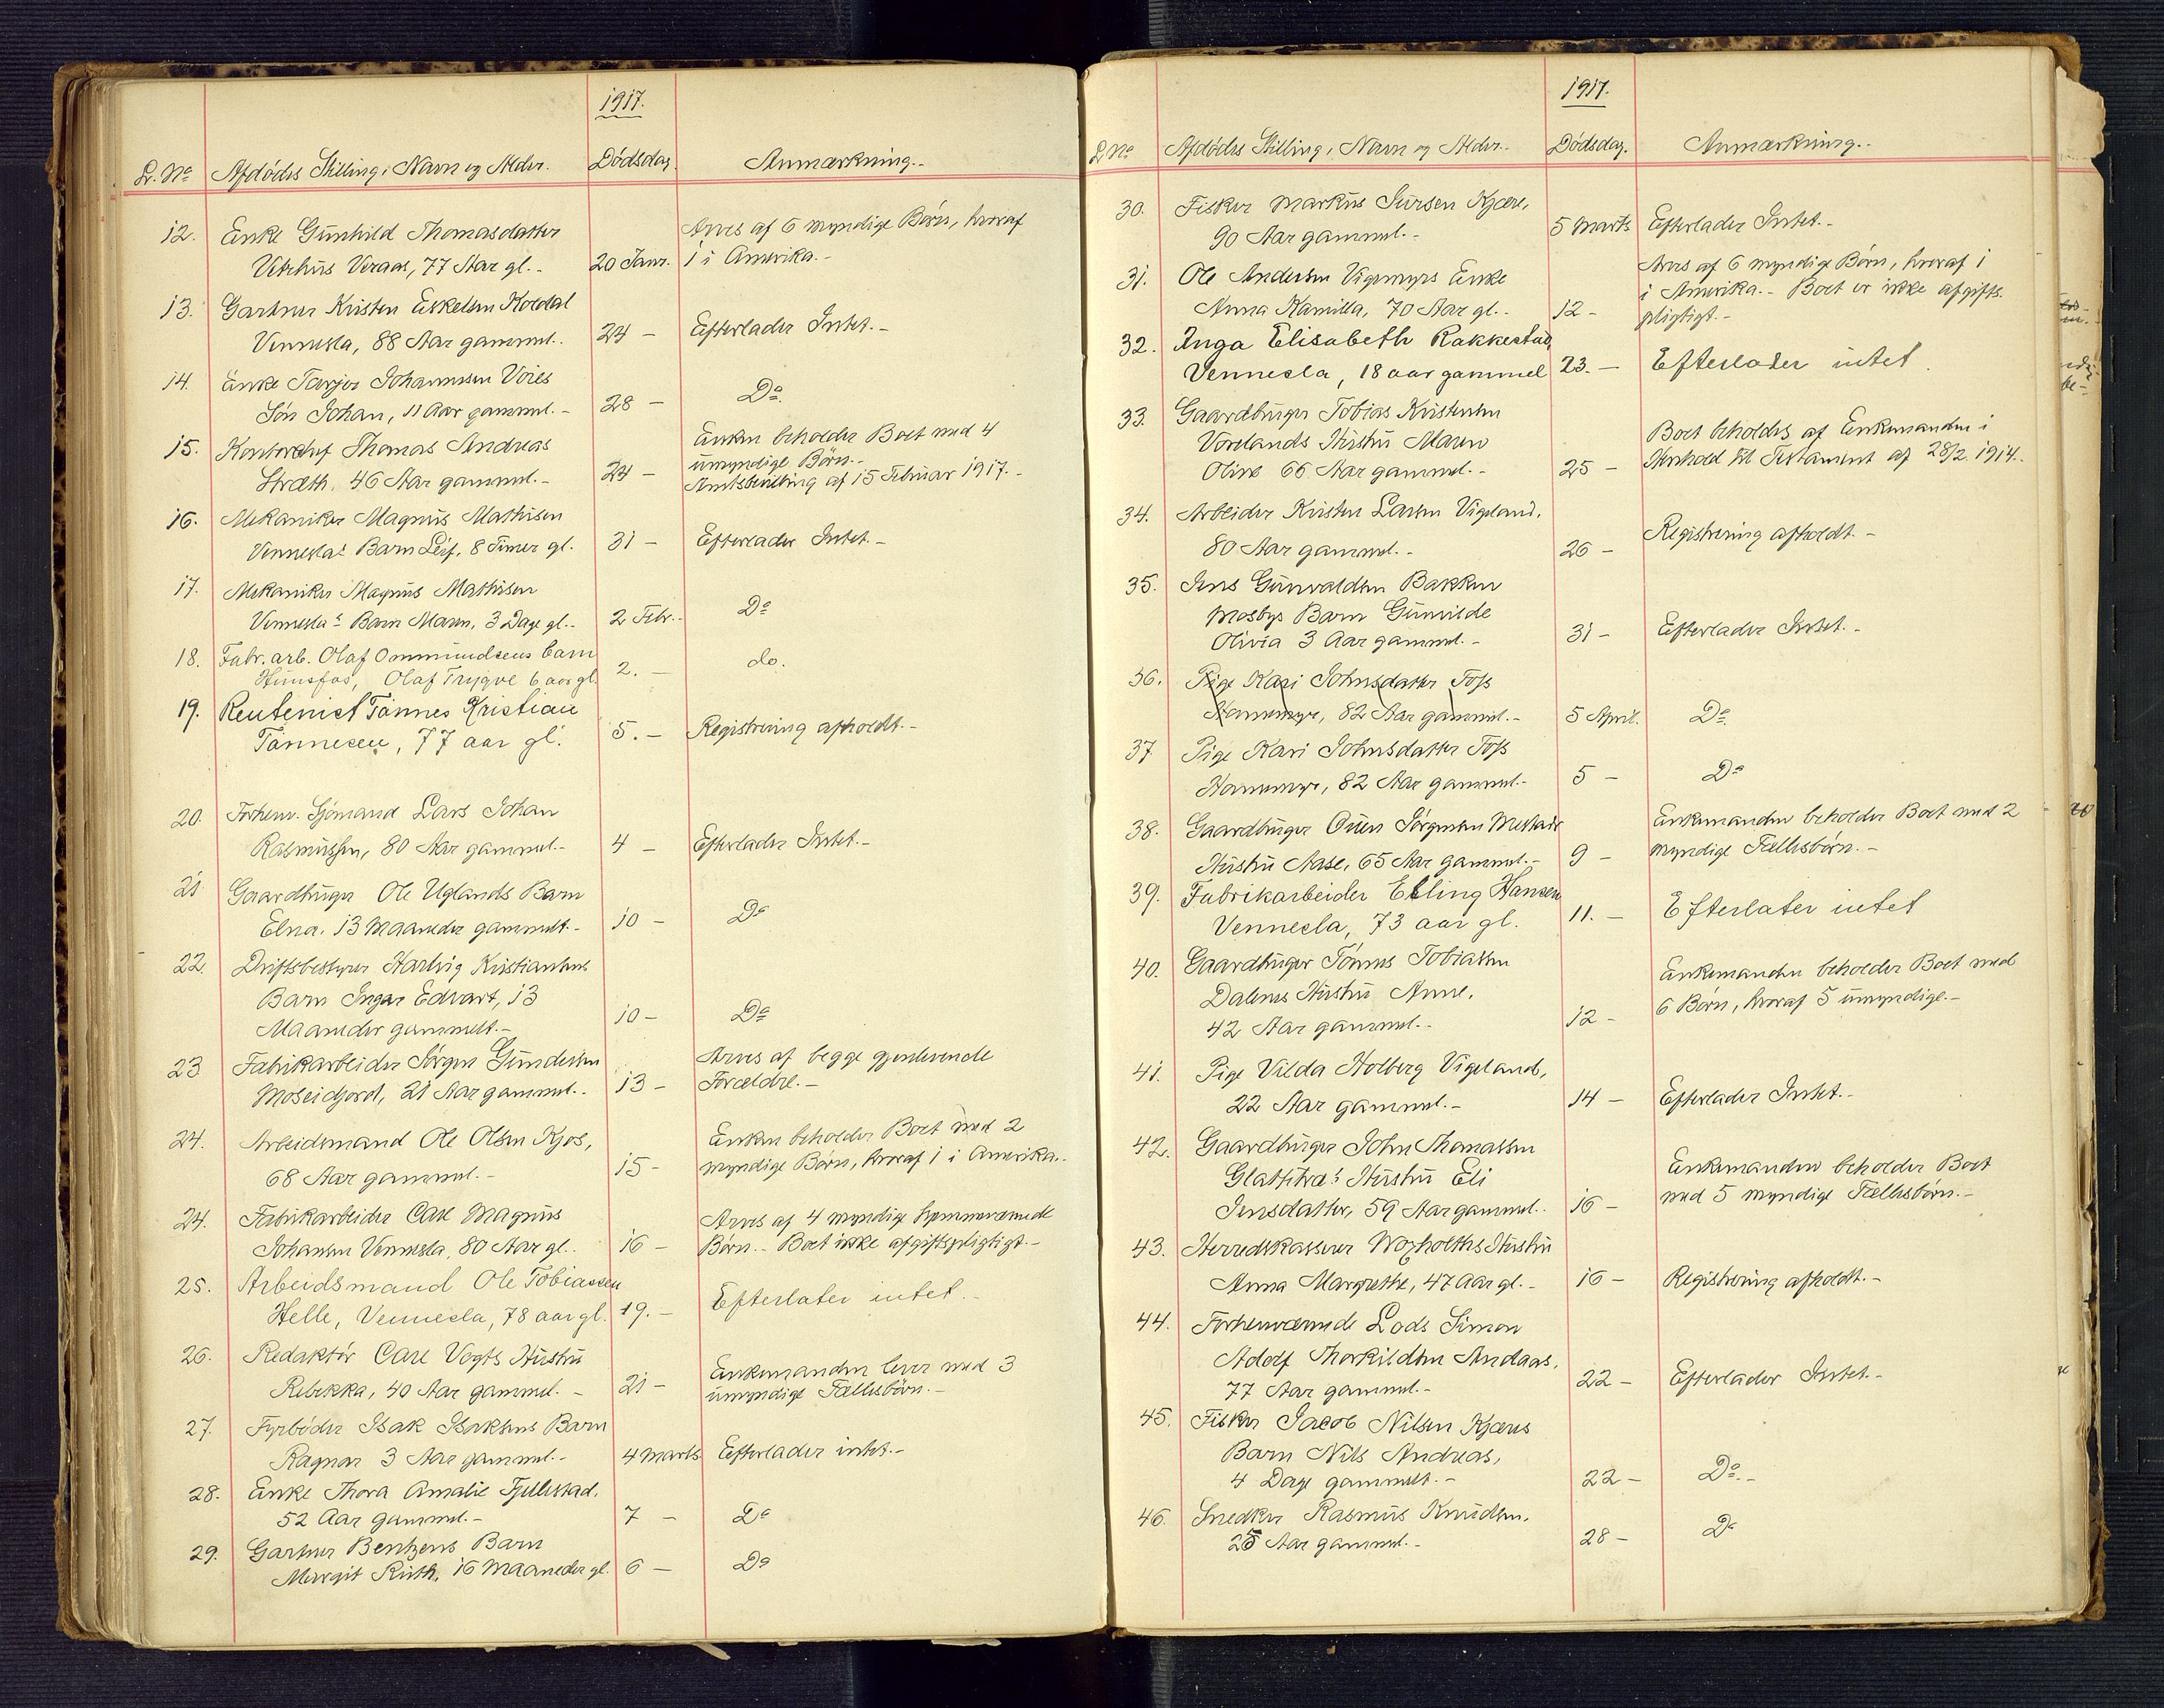 1917.
L. No Afdødes Stilling, Navn og Alder. Dødsdag. Anmærkning.-
12. Enke Gunhild Thomasdatter Arves af 6 myndige Børn, hvoraf
Vetrhus Veraas, 77 Aar gl.- 20 Janr. 1 i Amerika.-
13. Gartner Kristen Eskelsen Koldal
Vennesla, 88 Aar gammel.. 24 - Efterlader Intet.-
14. Enke Tarjer Johannesen Voies
Søn Johan, 11 Aar gammel.- 28 - Do.
15. Kontorchef Thomas Andreas Enken beholder Boet med 4
umyndige Børn.-
Stræth. 46 Aar gammel.- 24 - Amtsbevilling af 15 Februar 1917.-
16. Mekaniker Magnus Mathisen
Vennesla's Barn Leif, 8 Timer gl. 31 - Efterlader Intet.-
17. Mekaniker Magnus Mathisen
Vennesla's Barn Maren, 3 Dage gl.- 2 Febr.- Do
18. Fabr. arb. Olaf Ommundsens barn
Hunsfos, Olaf Trygve 6 aar gl. 2. - do.
19. Rentenist Tønnes Kristian
Tønnesen, 77 aar gl. 5. - Registrering afholdt.-
20. Forhenv. Sjømand Lars Johan
Rasmussen, 80 Aar gammel.- 4 - Efterlader Intet.-
21 Gaardbruger Ole Uglands Barn
Elna. 13 Maaneder gammelt.- 10 - Do
22. Driftsbestyrer Hartvig Kristiansens
Barn Ingar Edvart, 13
Maaneder gammelt.- 10 - Do
23 Fabrikarbeider Jørgen Gundersen Arves af begge gjenlevende
Moseidjord, 21 Aar gammel.. 13 - Forældre.-
24. Arbeidsmand Ole Olsen Kjos, Enken beholder Boet med 2
68 Aar gammel.- 15 - myndige Børn, hvoraf 1 i Amerika.-
24. Fabrikarbeider Carl Magnus Arves af 4 myndige hjemmeværende
Johansen Vennesla, 80 Aar gl.. 16 - Børn.- Boet ikke afgiftspligtigt.-
25. Arbeidsmand Ole Tobiassen
Helle, Vennesla, 78 aar gl. 19. - Efterlater intet.-
26. Redaktør Carl Vogts Hustru Enkemanden lever med 3
Rebekka, 40 Aar gammel.- 21 - umyndige Fællesbørn.-
27. Fyrbøder Isak Isaksens Barn
Ragnar 3 Aar gammel.- 4 Marts Efterlader intet.-
28. Enke Thora Amalie Fjellestad.
52 Aar gammel.- 7 - Do
29. Gartner Bentzens Barn
Margit Ruth, 16 Maaneder gl. 6 - Do
1917.
L No Afdødes Stilling, Navn og Alder.- Dødsdag. Anmærkning.-
30. Fisker Markus Jursen Kjære,
90 Aar gammel.- 5 Marts Efterlader Intet.-
31. Ole Andersen Vigemyrs Enke Arves af 6 myndige Børn, hvoraf 1
i Amerika.- Boet er ikke afgifts-
Anna Kamilla, 70 Aar gl.. 12 - pligtigt.-
32. Inga Elisabeth Rakkestad,
Vennesla, 18 aar gammel 23. - Efterlater intet.
33. Gaardbruger Tobias Kristensen
Vorelands Hustru Maren Boet beholdes af Enkemanden i
Oline 66 Aar gammel.- 25 - Henhold til Testament af 28/2 1914.
34. Arbeider Kristen Larsen Vigeland,
80 Aar gammel.- 26 - Registrering afholdt.-
35. Jens Gunvaldsen Bakken
Mosbys Barn Gunvilde
Olivia 3 Aar gammel.- 31 - Efterlader Intet.-
36. Pige Kari Johnsdatter Foss
Hommemyr, 82 Aar gammel.- 5 April. Do
37 Pige Kari Johnsdatter Foss
Hommemyr, 82 Aar gammel.- 5 - Do
38. Gaardbruger Ouen Jørgensen Mestads Enkemanden beholder Boet med 2
Hustru Aase, 65 Aar gammel.- 9 - myndige Fællesbørn.-
39. Fabrikarbeider Elling Hansen
Vennesla, 73 aar gl. 11. - Efterlater intet
40. Gaardbruger Tønnes Tobiassen
Dalenes Hustru Anne, Enkemanden beholder Boet med
42 Aar gammel.- 12 - 6 Børn, hvoraf 5 umyndige.-
41. Pige Vilda Holberg Vigeland,
22 Aar gammel.- 14 - Efterlader Intet.-
42. Gaardbruger John Thomassen
Glattetræ's Hustru Eli Enkemanden beholder Boet
Jensdatter, 59 Aar gammel.. 16 - med 5 myndige Fællesbørn.-
43. Herredskasserer Woxholths Hustru
Anna Margrethe, 47 Aar gl.- 16 - Registrering afholdt.-
44. Forhenværende Lods Simon
Adolf Thorkildsen Andaas,
77 Aar gammel.- 22 - Efterlader Intet.-
45. Fisker Jacob Nilsen Kjæres
Barn Nils Andreas,
4 Dage gammelt.- 22 - Do.-
46. Snedker Rasmus Knudsen.
25 Aar gammel.- 28 - Do